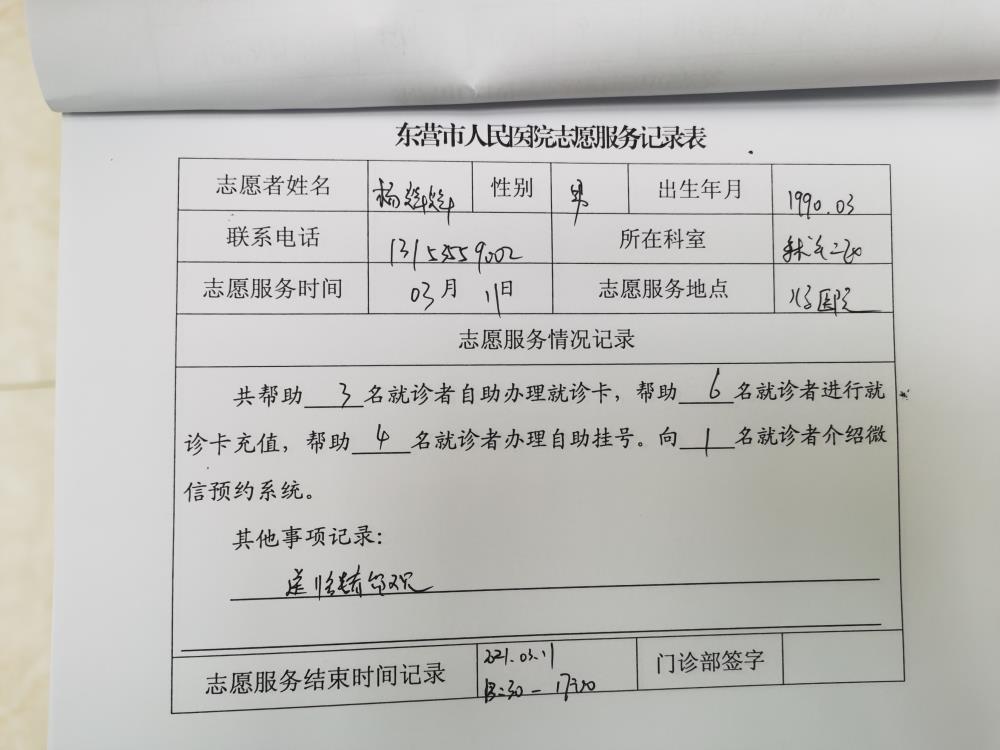 东营市人民医院志愿服务记录表
志愿者姓名 杨 性别 男 出生年月 1990.03
联系电话 13153559002 所在科室
志愿服务时间 03月11日 志愿服务地点 医院
志愿服务情况记录
共帮助3名就诊者自助办理就诊卡，帮助6名就诊者进行就
诊卡充值，帮助4名就诊者办理自助挂号。向1名就诊者介绍微
信预约系统。
其他事项记录：
志愿服务结束时间记录 2021.03.11 门诊部签字